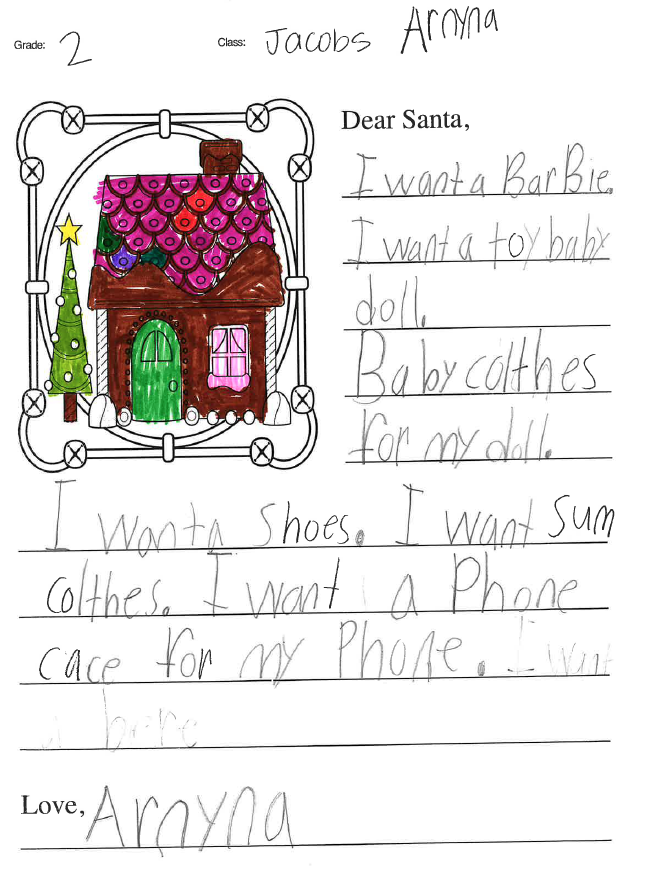 Grade: 2 Class: Jacobs Arnyna
Dear Santa,
I want a BarBie.
I want a toy baby
doll.
Baby colthes
for my doll.
I want a shoes. I want sum
colthes. I want a Phone
cace for my Phone. I want
a bere
Love, Arnyna